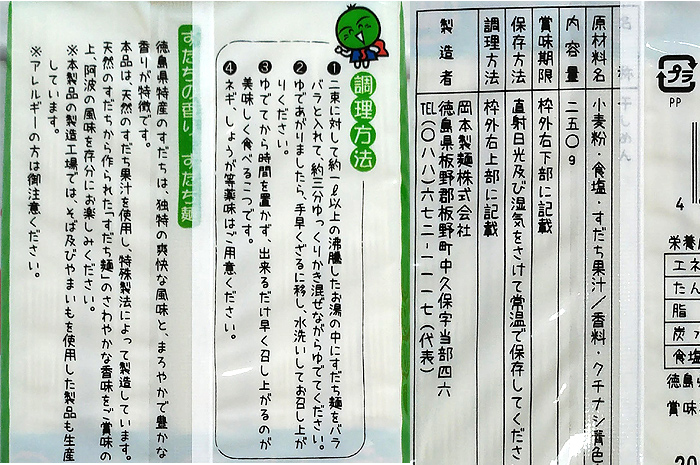 名 称 干しめん
原材料名 小麦粉・食塩・すだち果汁/香料・クチナシ青色
内容量 二五〇g
賞味期限 枠外右下部に記載
保存方法 直射日光及び湿気をさけて常温で保存してくださ
調理方法 枠外右上部に記載
製造者 岡本製麺株式会社
徳島県板野郡板野町中久保字当部四六
TEL(〇八八)六七二-一一一七(代表)
調理方法
❶二束に対して約1ℓ以上の沸騰したお湯の中にすだち麺をバラ
バラと入れて、約三分ゆっくりかき混ぜながらゆでてください。
❷ゆであがりましたら、手早くざるに移し、水洗いしてお召し上が
りください。
❸ゆでてから時間を置かず、出来るだけ早く召し上がるのが
美味しく食べるこつです。
❹ネギ、しょうが等薬味はご用意ください。
すだちの香り すだち麺
徳島県特産のすだちは、独特の爽快な風味と、まろやかで豊かな
香りが特徴です。
本品は、天然のすだち果汁を使用し、特殊製法によって製造しています。
天然のすだちから作られた「すだち麺」のさわやかな香味をご賞味の
上、阿波の風味を存分にお楽しみください。
※本製品の製造工場では、そば及びやまいもを使用した製品も生産
しています。
※アレルギーの方は御注意ください。
プラ
PP
4
栄養
エネ
たん
脂
炭
食塩
徳島
賞味
20